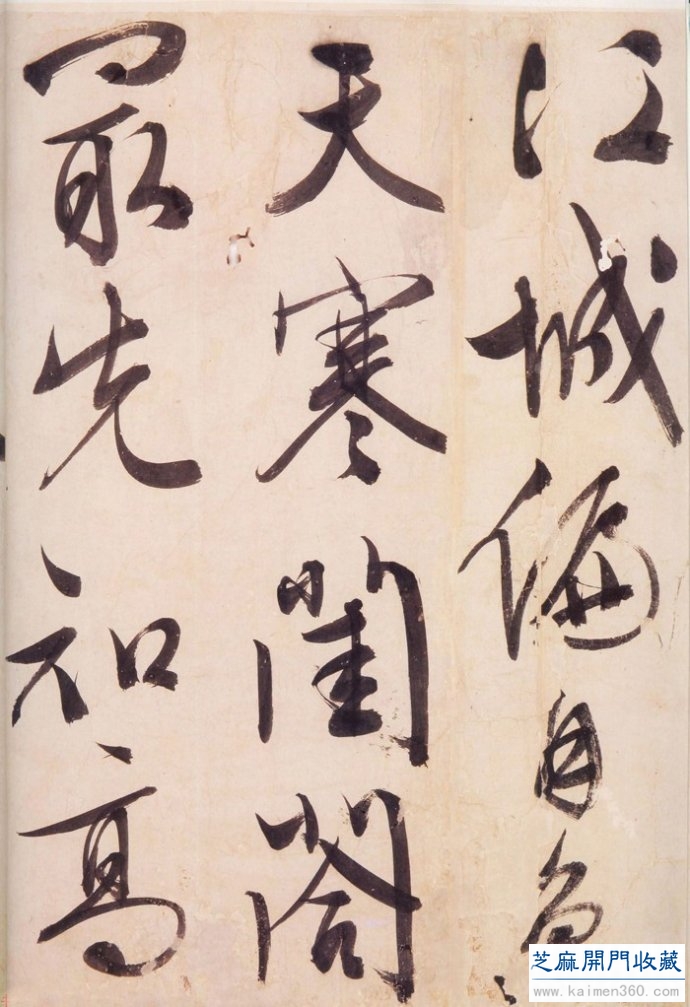 江城偏自急
天寒閨閣
最先知高
芝麻開門收藏
www.kaimen360.com